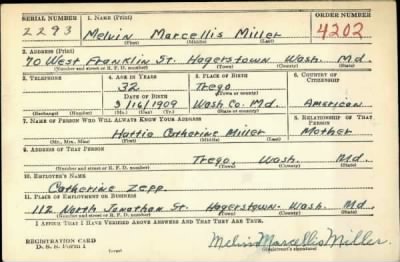 SERIAL NUMBER 1. NAME (Print) ORDER NUMBER
2293 Melvin Marcellis Miller 4202
(First) (Middle) (Last)
2. ADDRESS (Print)
70 West Franklin St. Hagerstown Wash. Md.
(Number and street or R. F. D. number) (Town) (County) (State)
3. TELEPHONE 4. AGE IN YEARS 5. PLACE OF BIRTH 6. COUNTRY OF CITIZENSHIP
32 Trego
(Town or county)
DATE OF BIRTH
3/16/1909 Wash Co. Md. American
(Exchange) (Number) (Mo.) (Day) (Yr.) (State or country)
7. NAME OF PERSON WHO WILL ALWAYS KNOW YOUR ADDRESS 8. RELATIONSHIP OF THAT PERSON
Hattie Catherine Miller Mother
(Mr., Mrs., Miss) (First) (Middle) (Last)
9. ADDRESS OF THAT PERSON
Trego, Wash. Md.
(Number and street or R. F. D. number) (Town) (County) (State)
10. EMPLOYER'S NAME
Catherine Zepp.
11. PLACE OF EMPLOYMENT OR BUSINESS
112 North Jonathan St. Hagerstown- Wash. Md
(Number and street or R. F. D. number) (Town) (County) (State)
I AFFIRM THAT I HAVE VERIFIED ABOVE ANSWERS AND THAT THEY ARE TRUE.
REGISTRATION CARD
D. S. S. Form 1
(over)
Melvin Marcellis Miller.
(Registrant's signature)